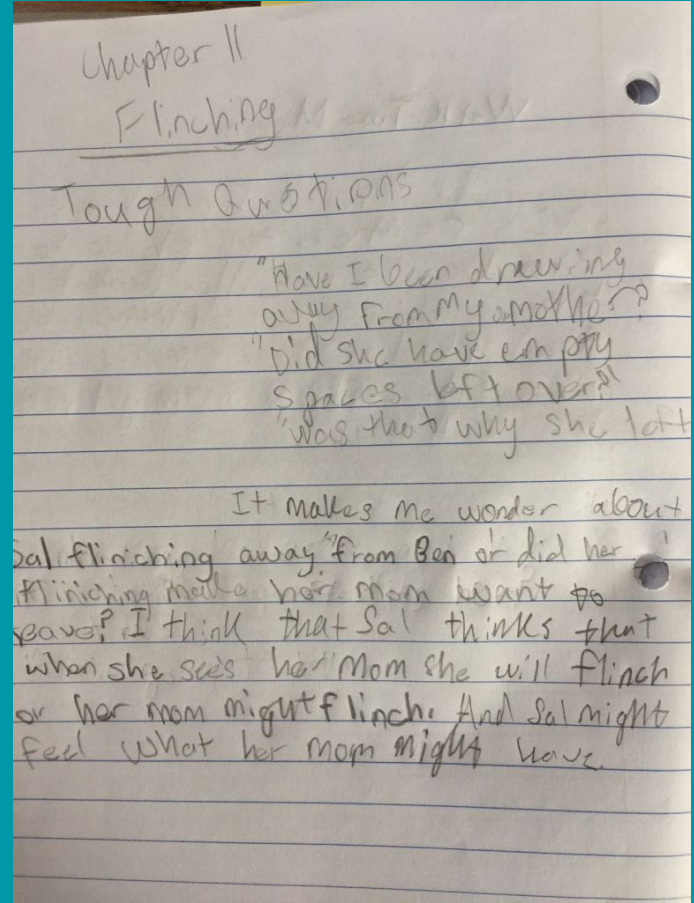 Chapter 11
Flinching
Tough Questions
"Have I been drawing
away from my mother?
"Did she have empty
spaces left over?"
"Was that why she left
It makes me wonder about
Sal flinching away from Ben or did her
fliniching make her mom want to
leave? I think that Sal thinks that
when she sees her mom she will flinch
or her mom might flinch. And Sal might
feel what her mom might have.